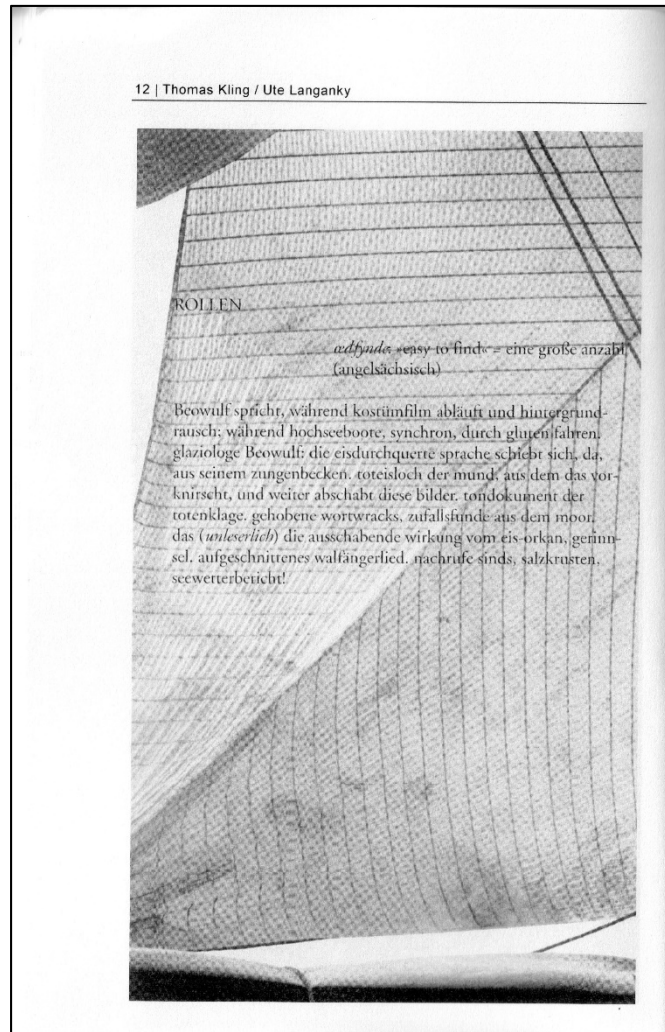 12 | Thomas Kling / Ute Langanky
ROLLEN
»easy to find« = eine große anzahl
(angelsächsisch)
Beowulf spricht, während kostümfilm abläuft und hintergrund-
rausch; während hochseeboote, synchron, durch gluten fahren.
glaziologe Beowulf: die eisdurchquerte sprache schiebt sich, da,
aus seinem zungenbecken. toteisloch der mund, aus dem das vor-
knirscht, und weiter abschabt diese bilder. tondokument der
totenklage. gehobene wortwracks, zufallsfunde aus dem moor.
das (unleserlich) die ausschabende wirkung vom eis-orkan, gerinn-
sel. aufgeschnittenes walfängerlied. nachrufe sinds, salzkrusten.
seewetterbericht!